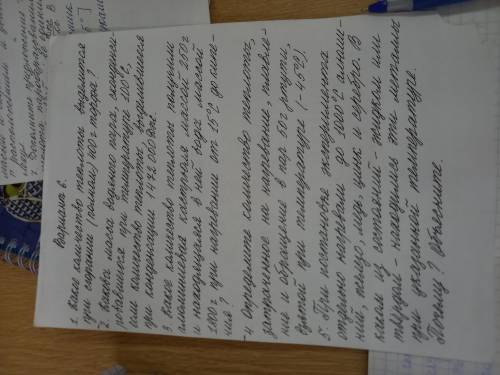 Вариант 6.
1. Какое количество теплоты выделится
при сгорании (полном) 400 г торфа?
2. Какова масса водяного пара, находи-
вшегося при температуре 100°С,
если количество теплоты, выделившееся
при конденсации 1492 000 Дж?
3. Какое количество теплоты получили
алюминиевая кастрюля массой 200 г
и находящаяся в ней вода массой
1800 г при нагревании от 15°С до кипе-
ния?
4. Определите количество теплоты,
затраченное на нагревание, плавле-
ние и обращение в пар 50 г ртути,
взятой при температуре (-45°С).
5. При постановке эксперимента
отдельно нагревали до 1000°С алюми-
ний, железо, медь, цинк и серебро. В
каком из состояний - жидком или
твердом - находились эти металлы
при указанной температуре.
Почему? Объясните.